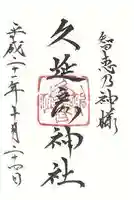 智恵乃神様
久延彦神社
平成二十一年十月二十四日